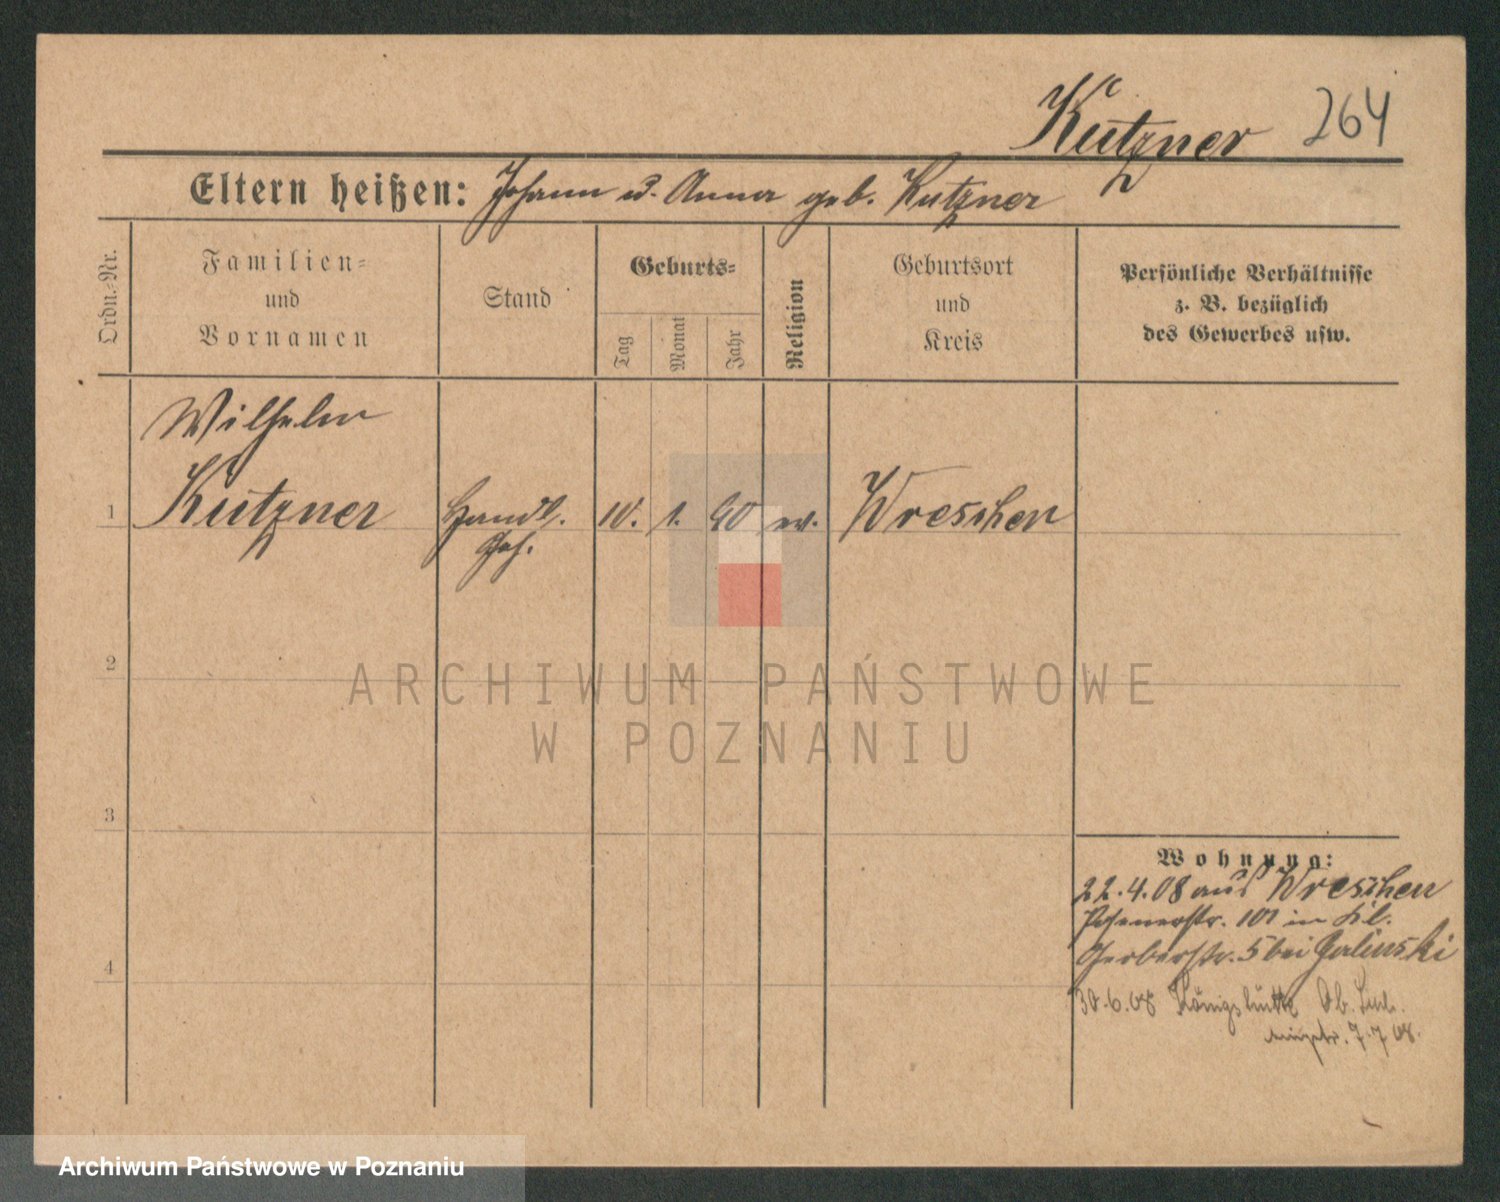 Kutzner 264
Eltern heißen: Johann u. Anna geb. Kutzner
Ordn.-Nr.
Familien-
und
Vornamen
Stand
Geburts-
Tag
Monat
Jahr
Religion
Geburtsort
und
Kreis
Persönliche Verhältnisse
z. B. bezüglich
des Gewerbes usw.
Wilhelm
1 Kutzner Handl. 10. 1. 90 ev. Wreschen
Geh.
2
3
4
Wohnung:
22.4.08 aus Wreschen
Posenerstr. 101 in Kl.
Gerberstr. 5 bei Galinski
30.6.08 Königshütte Ob. Schl.
7.7.08.
ARCHIWUM PAŃSTWOWE
W POZNANIU
Archiwum Państwowe w Poznaniu